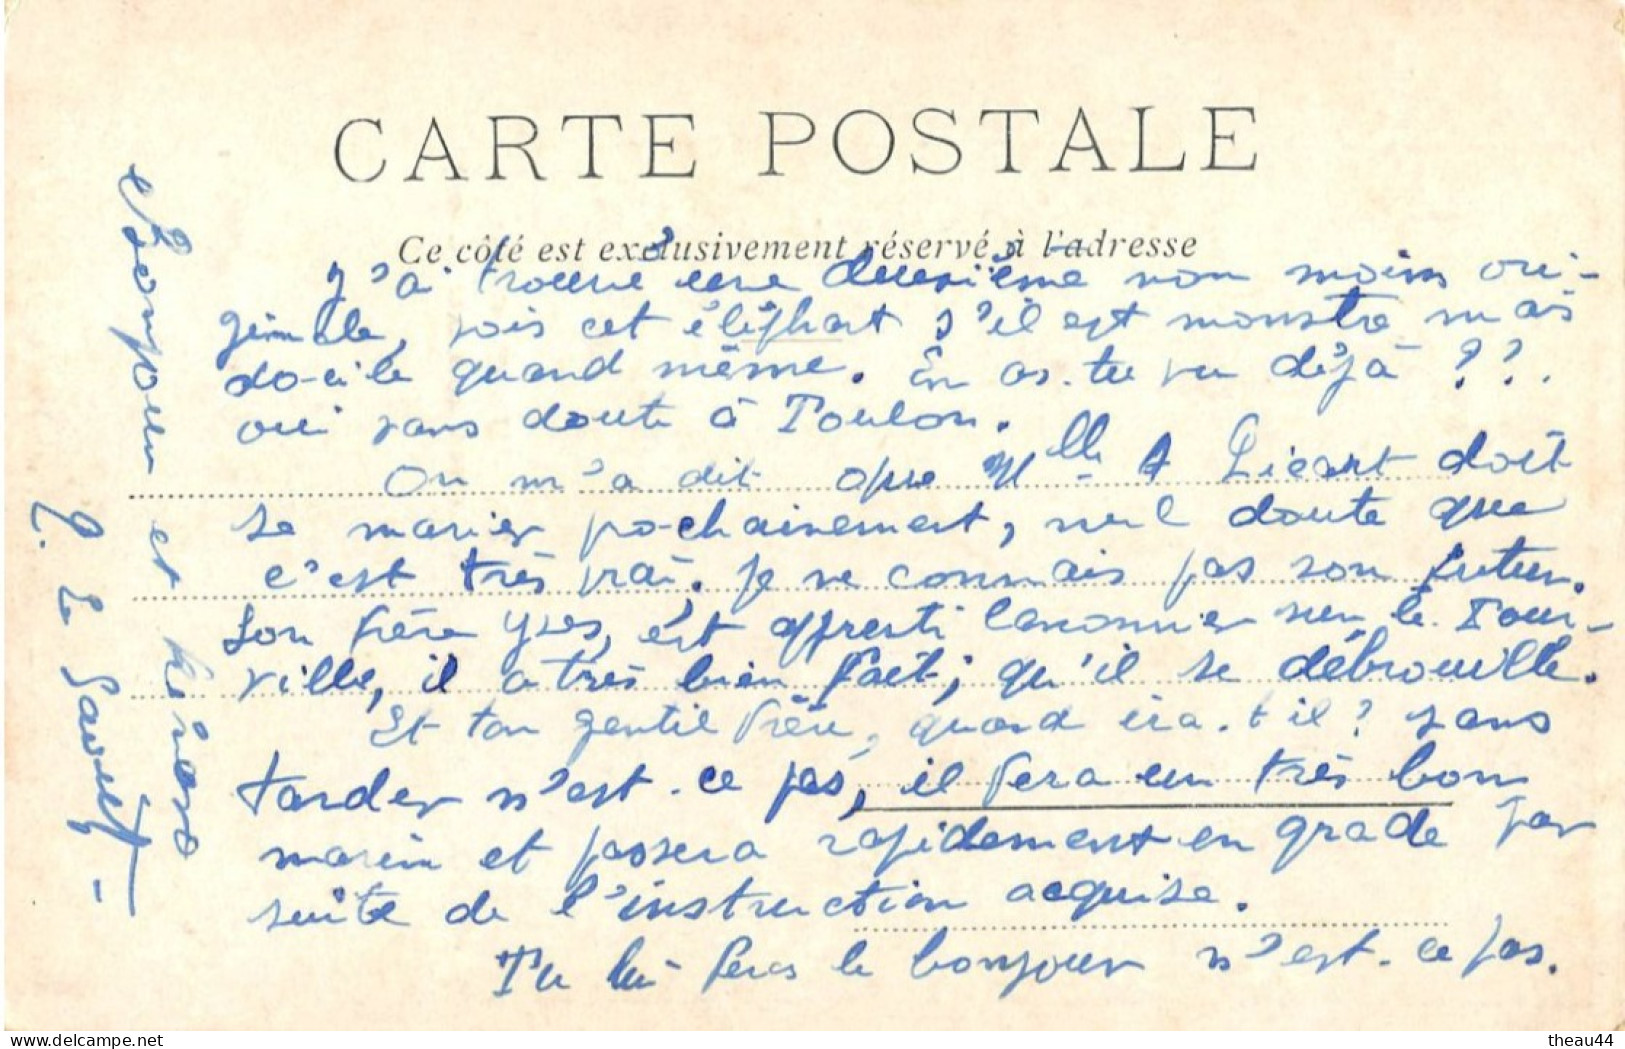 CARTE POSTALE
Ce côté est exclusivement réservé à l'adresse
J'ai trouvé une deuxième non moins ori-
ginale, vois cet éléphant s'il est monstre mais
docile quand même. En as-tu vu déjà ??.
oui sans doute à Toulon.
On m'a dit que Mlle A Licart doit
se marier prochainement, nul doute que
c'est très vrai. Je ne connais pas son futur.
Son frère Yves, est apprenti canonnier sur le Tour-
ville, il a très bien fait; qu'il se débrouille.
Et ton gentil frère, quand ira-t-il? sans
tarder n'est-ce pas, il fera un très bon
marin et passera rapidement en grade par
suite de l'instruction acquise.
Tu lui feras le bonjour n'est-ce pas.
Bonjour et
Le
delcampe.net
theau44